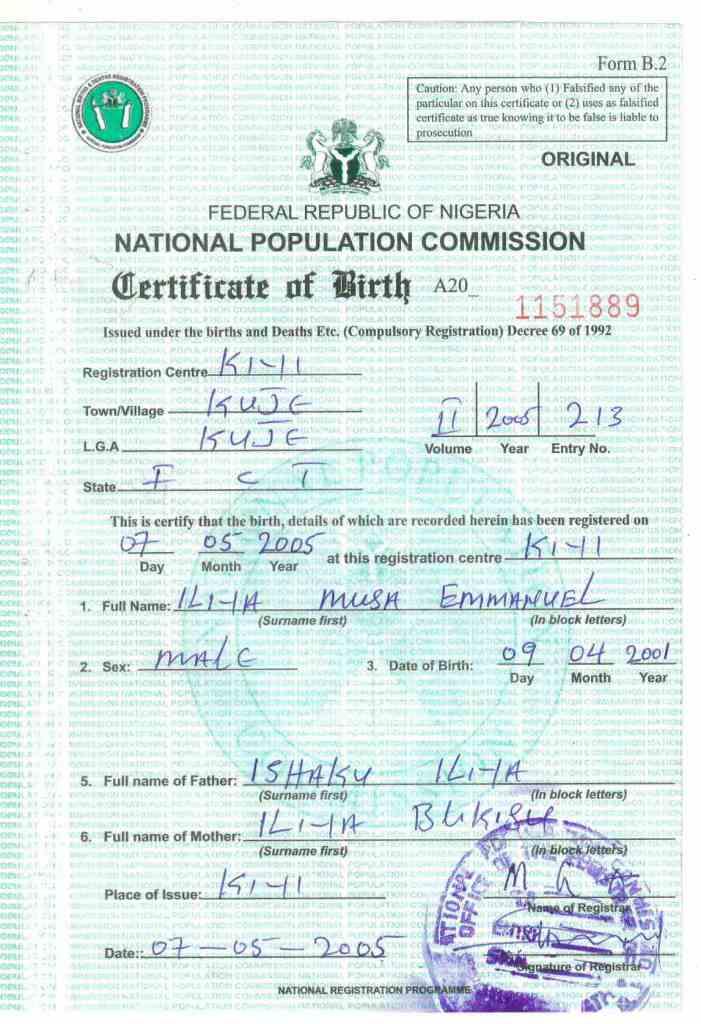 Form B.2
Caution: Any person who (1) Falsified any of the
particular on this certificate or (2) uses as falsified
certificate as true knowing it to be false is liable to
prosecution
ORIGINAL
FEDERAL REPUBLIC OF NIGERIA
NATIONAL POPULATION COMMISSION
Certificate of Birth A20_ 1151889
Issued under the births and Deaths Etc. (Compulsory Registration) Decree 69 of 1992
Registration Centre KIHI
Town/Village KUJE
L.G.A KUJE
II 2005 213
Volume Year Entry No.
State F C T
This is certify that the birth, details of which are recorded herein has been registered on
07 05 2005 at this registration centre KIHI
Day Month Year
1. Full Name: ILIHA MUSA EMMANUEL
(Surname first) (In block letters)
2. Sex: MALE 3. Date of Birth: 09 04 2001
Day Month Year
5. Full name of Father: ISHAKU ILIHA
(Surname first) (In block letters)
6. Full name of Mother: ILIHA BLIKISU
(Surname first) (In block letters)
Place of Issue: KIHI
Name of Registrar
Date:: 07-05-2005
Signature of Registrar
NATIONAL REGISTRATION PROGRAMME